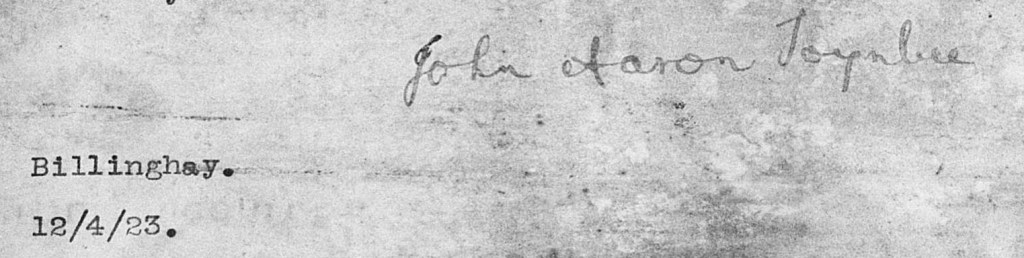 John Aaron Toynbee
Billinghay.
12/4/23.